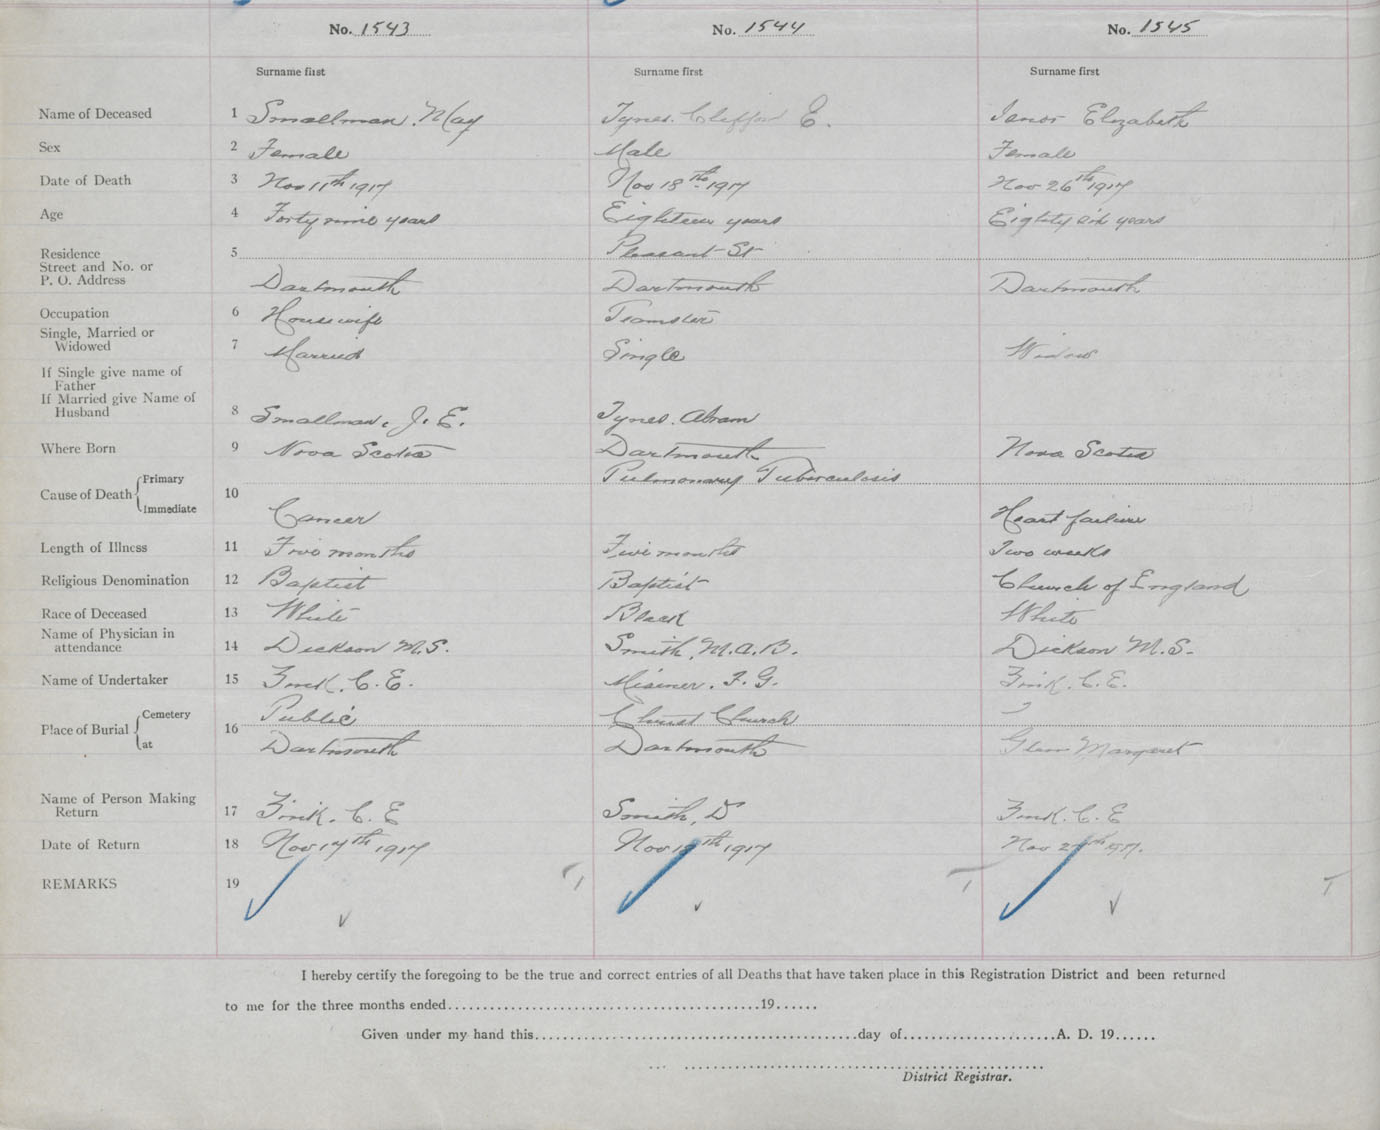 No. 1543 No. 1544 No. 1545
Surname first Surname first Surname first
Name of Deceased 1 Smallman. May Tynes. Clifford E. Elizabeth
Sex 2 Female Male Female
Date of Death 3 Nov 11th 1917 Nov 18th 1917 Nov 26th 1917
Age 4 Forty nine years Eighteen years Eighty six years
Residence 5 Pleasant St
Street and No. or
P. O. Address Dartmouth Dartmouth Dartmouth
Occupation 6 Housewife Teamster
Single, Married or
Widowed 7 Married Single Widow
If Single give name of
Father
If Married give Name of
Husband 8 Smallman, J. E. Tynes. Abram
Where Born 9 Nova Scotia Dartmouth Nova Scotia
Cause of Death Primary 10 Pulmonary Tuberculosis
Immediate Cancer Heart failure
Length of Illness 11 Five months Five months Two weeks
Religious Denomination 12 Baptist Baptist Church of England
Race of Deceased 13 White Black White
Name of Physician in
attendance 14 Dickson M.S. Smith, M.A.B. Dickson M.S.
Name of Undertaker 15 Zink. C. E. Misener. F. G. Zink. C. E.
Place of Burial Cemetery 16 Public Christ Church
at Dartmouth Dartmouth Glen Margaret
Name of Person Making
Return 17 Zink. C. E Smith, D Zink. C. E
Date of Return 18 Nov 1917 Nov 1917 Nov
REMARKS 19
I hereby certify the foregoing to be the true and correct entries of all Deaths that have taken place in this Registration District and been returned
to me for the three months ended 19
Given under my hand this day of A. D. 19
District Registrar.